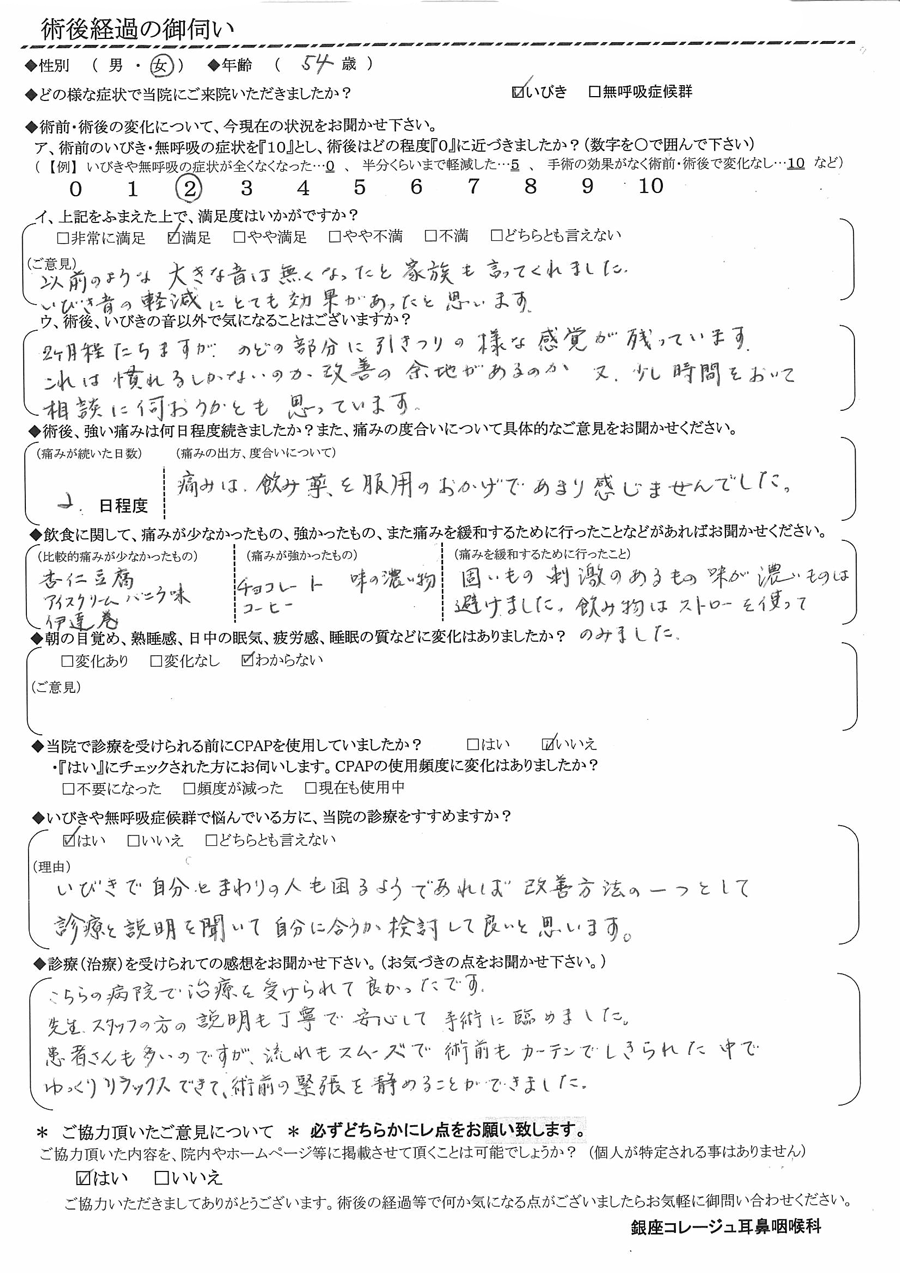 術後経過の御伺い
◆性別 ( 男 ・ 女 ) ◆年齢 ( 54 歳 )
◆どの様な症状で当院にご来院いただきましたか? ☑いびき □無呼吸症候群
◆術前・術後の変化について、今現在の状況をお聞かせ下さい。
ア、術前のいびき・無呼吸の症状を『10』とし、術後はどの程度『0』に近づきましたか?(数字を〇で囲んで下さい)
(【例】 いびきや無呼吸の症状が全くなくなった…0 、 半分くらいまで軽減した…5 、 手術の効果がなく術前・術後で変化なし…10 など)
0 1 2 3 4 5 6 7 8 9 10
イ、上記をふまえた上で、満足度はいかがですか?
□非常に満足 ☑満足 □やや満足 □やや不満 □不満 □どちらとも言えない
(ご意見)
以前のような 大きな音は無くなったと 家族も言ってくれました.
いびき音の軽減にとても効果があったと思います.
ウ、術後、いびきの音以外で気になることはございますか?
2ヶ月経たちますが. のどの部分に引きつりの様な感覚が残っています.
これは慣れるしかないのか 改善の余地があるのか 又、少し時間をおいて
相談に伺おうかとも思っています。
◆術後、強い痛みは何日程度続きましたか?また、痛みの度合いについて具体的なご意見をお聞かせください。
(痛みが続いた日数) (痛みの出方、度合いについて)
2. 日程度 痛みは、飲み薬を服用のおかげであまり感じませんでした。
◆飲食に関して、痛みが少なかったもの、強かったもの、また痛みを緩和するために行ったことなどがあればお聞かせください。
(比較的痛みが少なかったもの) (痛みが強かったもの) (痛みを緩和するために行ったこと)
杏仁豆腐 チョコレート 味の濃い物 固いもの 刺激のあるもの 味が濃いものは
アイスクリーム バニラ味 コーヒー 避けました。飲み物はストローを使って
伊達巻 のみました.
◆朝の目覚め、熟睡感、日中の眠気、疲労感、睡眠の質などに変化はありましたか?
□変化あり □変化なし ☑わからない
(ご意見)
◆当院で診療を受けられる前にCPAPを使用していましたか? □はい ☑いいえ
・『はい』にチェックされた方にお伺いします。CPAPの使用頻度に変化はありましたか?
□不要になった □頻度が減った □現在も使用中
◆いびきや無呼吸症候群で悩んでいる方に、当院の診療をすすめますか?
☑はい □いいえ □どちらとも言えない
(理由)
いびきで自分とまわりの人も困るようであれば 改善方法の一つとして
診療と説明を聞いて自分に合うか検討して良いと思います。
◆診療(治療)を受けられての感想をお聞かせ下さい。(お気づきの点をお聞かせ下さい。)
こちらの病院で治療を受けられて良かったです.
先生、スタッフの方の説明も丁寧で安心して 手術に臨めました。
患者さんも多いのですが、流れもスムーズで 術前もカーテンでしきられた中で
ゆっくりリラックスできて、術前の緊張を静めることができました.
* ご協力頂いたご意見について * 必ずどちらかにレ点をお願い致します。
ご協力頂いた内容を、院内やホームページ等に掲載させて頂くことは可能でしょうか? (個人が特定される事はありません)
☑はい □いいえ
ご協力いただきましてありがとうございます。術後の経過等で何か気になる点がございましたらお気軽に御問い合わせください。
銀座コレージュ耳鼻咽喉科